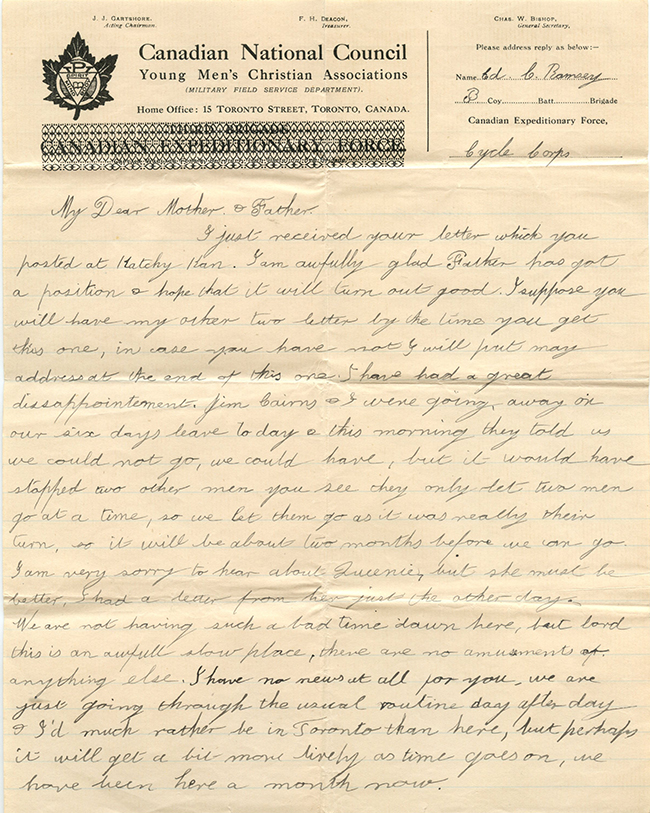 J. J. Gartshore.
Acting Chairman.
F. H. Deacon,
Treasurer.
Chas. W. Bishop,
General Secretary,
Canadian National Council
Young Men's Christian Associations
(MILITARY FIELD SERVICE DEPARTMENT).
Home Office: 15 Toronto Street, Toronto, Canada.
THIRD BRIGADE
CANADIAN EXPEDITIONARY FORCE.
Please address reply as below:—
Name Ed. C. Ramsey
B Coy. Batt. Brigade
Canadian Expeditionary Force,
Cycle Corps
My Dear Mother & Father.
I just received your letter which you
posted at Katchy Kan. I am awfully glad Father has got
a position & hope that it will turn out good. I suppose you
will have my other two letter by the time you get
this one, in case you have not I will put may
address at the end of this one. I have had a great
dissappointement. Jim Cairns & I were going away on
our six days leave to day & this morning they told us
we could not go, we could have, but it would have
stopped two other men you see they only let two men
go at a time, so we let them go as it was really their
turn, so it will be about two months before we can go.
I am very sorry to hear about Queenie, but she must be
better, I had a letter from her just the other day.
We are not having such a bad time down here, but lord
this is an awfull slow place, there are no amusement or
anything else. I have no news at all for you, we are
just going through the usual routine day after day
& I'd much rather be in Toronto than here, but perhaps
it will get a bit more lively as time goes on, we
have been here a month now.